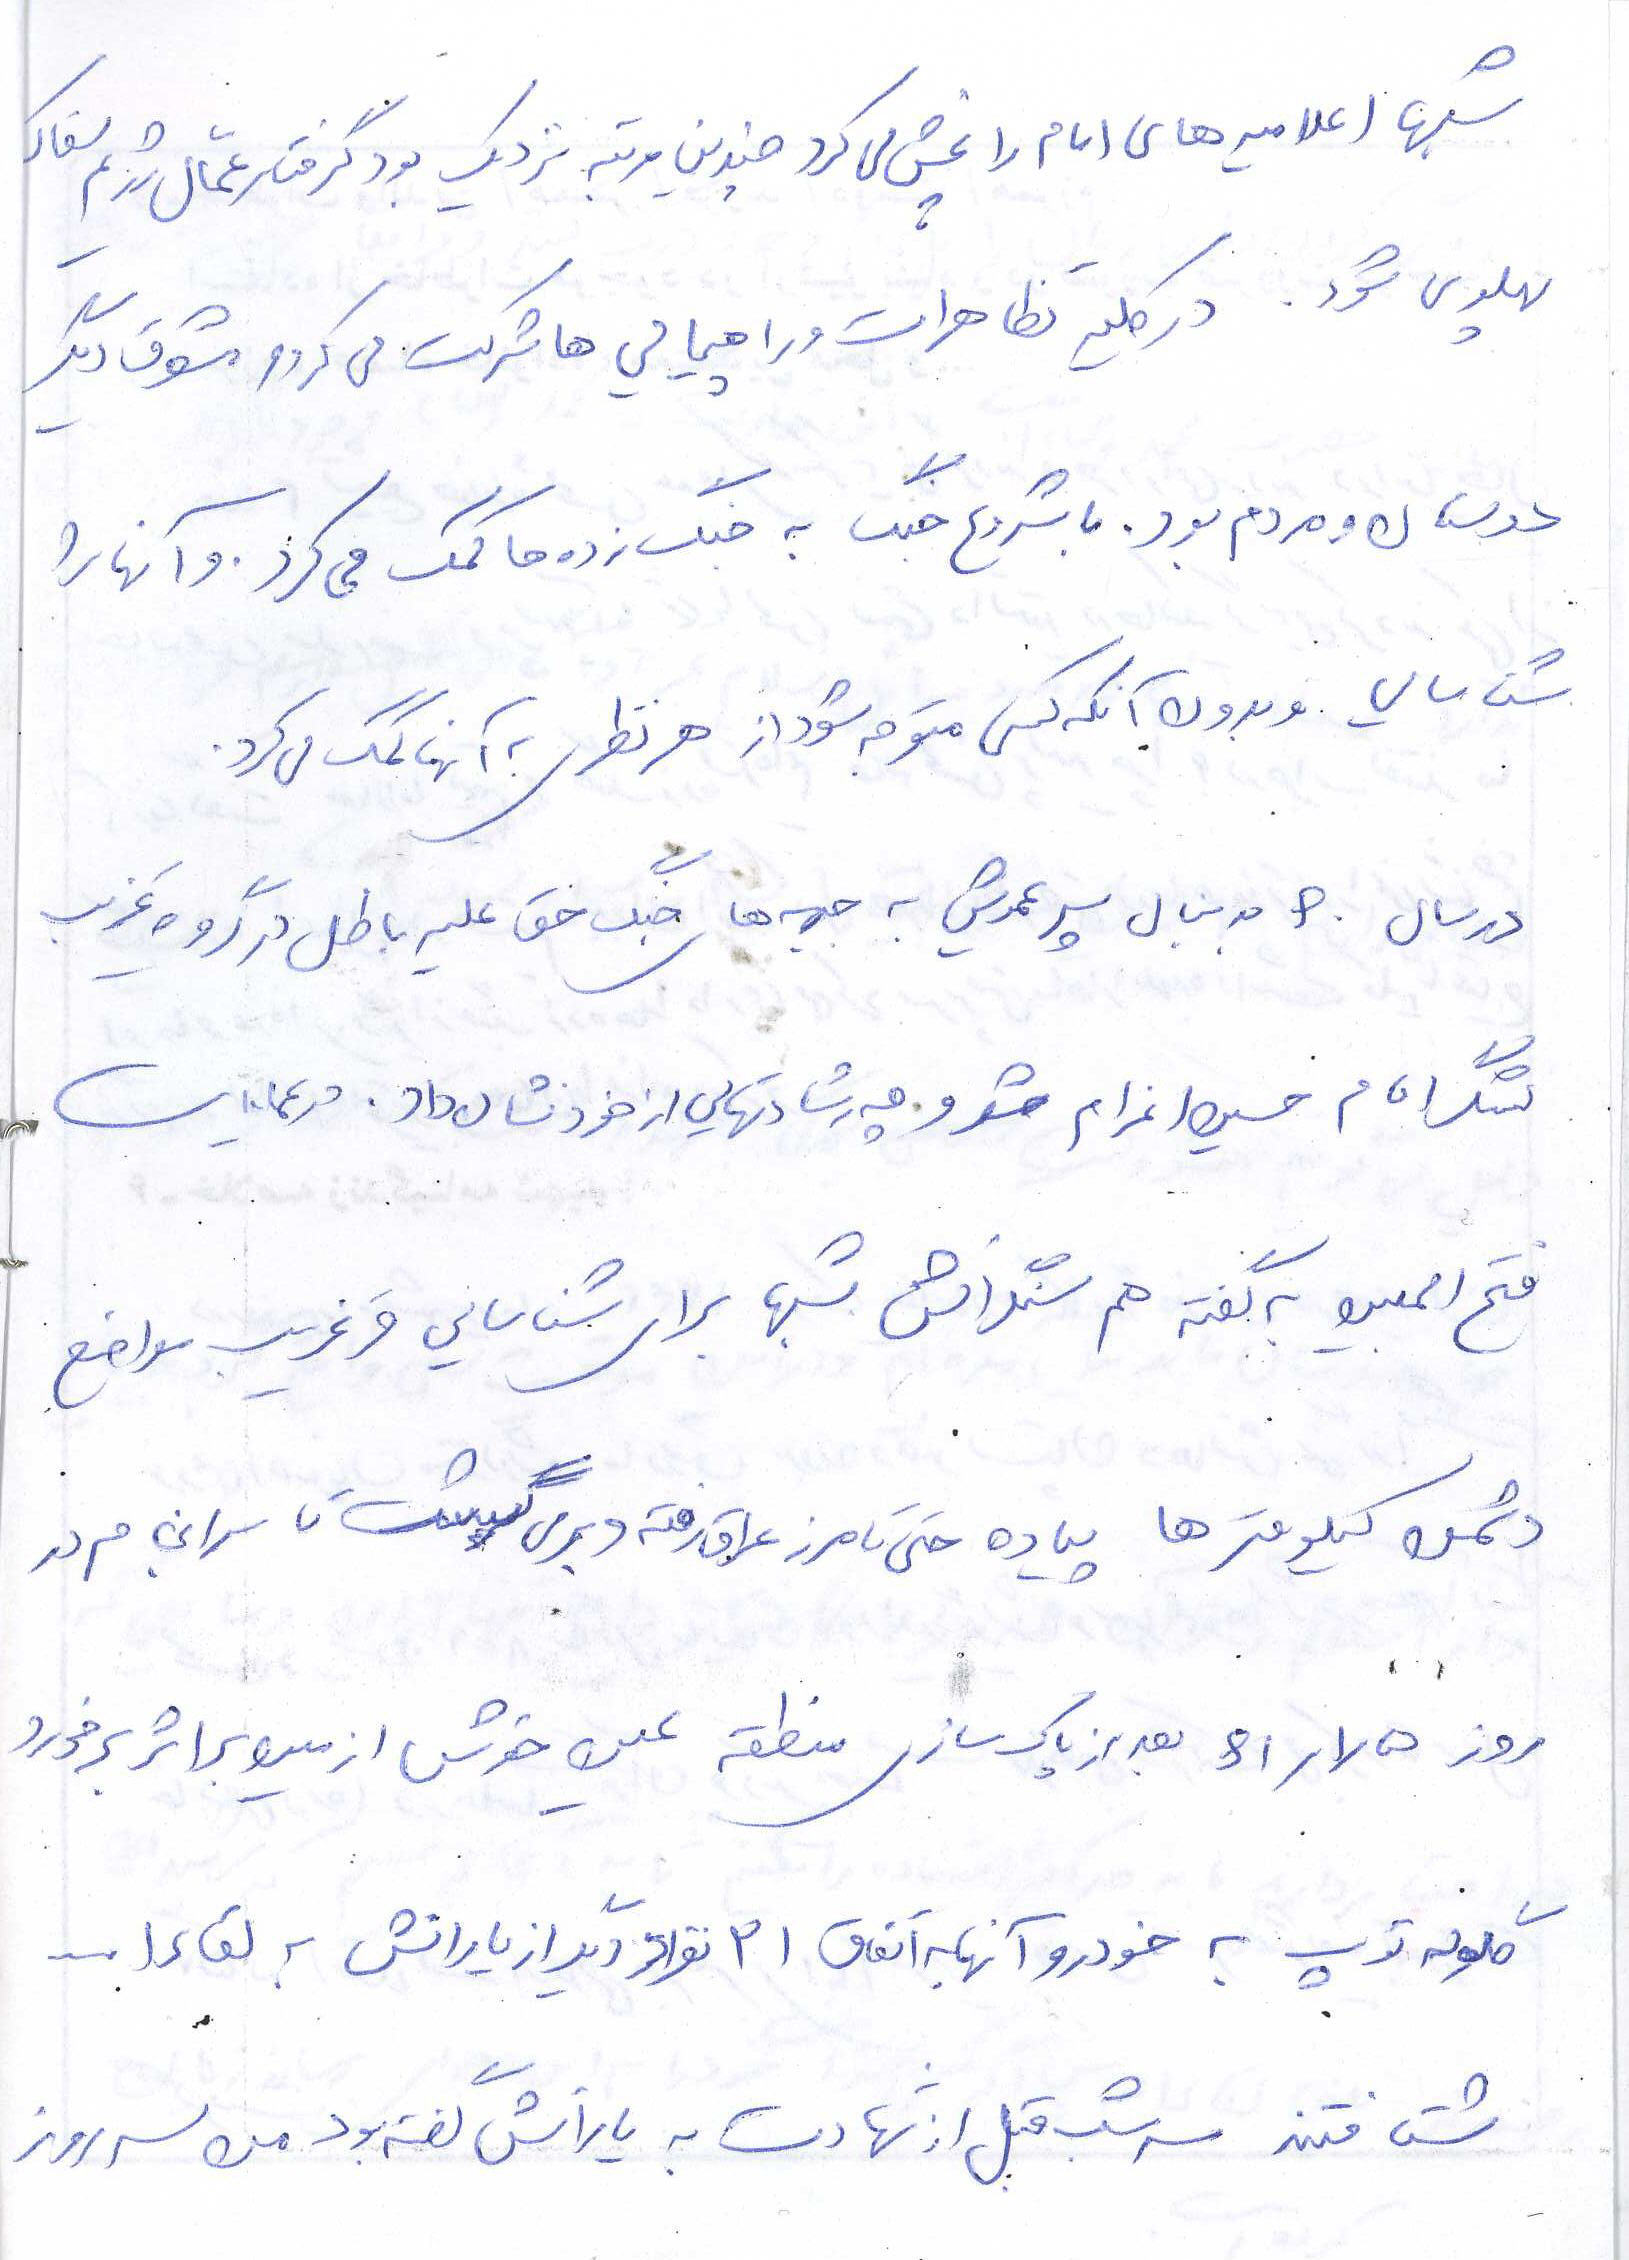 شبها اعلامیه های امام را پخش می کرد چندین مرتبه نزدیک بود گرفتار عمّال رژیم سفاک
پهلوی شود. در کلیه تظاهرات و راهپیمائی ها شرکت می کرد و مشوق دیگر
دوستان و مردم بود. با شروع جنگ به جنگ زده ها کمک می کرد. و آنها را
شناسایی و بدون آنکه کسی متوجه شود از هر نظری به آنها کمک می کرد.
در سال ۶۰ به دنبال پسر عمویش به جبهه های جنگ حق علیه باطل در گروه تخریب
لشگر امام حسین اعزام شد و چه رشادتهایی از خود نشان داد. در عملیات
فتح المبین به گفته هم سنگرانش شبها برای شناسائی و تخریب مواضع
دشمن کیلومترها پیاده حتی تا مرز عراق رفته و برمی گشت تا سرانجام در
روز بعد از پاک سازی منطقه عین خوش از مین بر اثر برخورد
گلوله توپ به خودرو آنها به اتفاق نفر دیگر از یارانش به لقاء ا...
شتافتند سه شب قبل از شهادت به یارانش گفته بود من سه روز